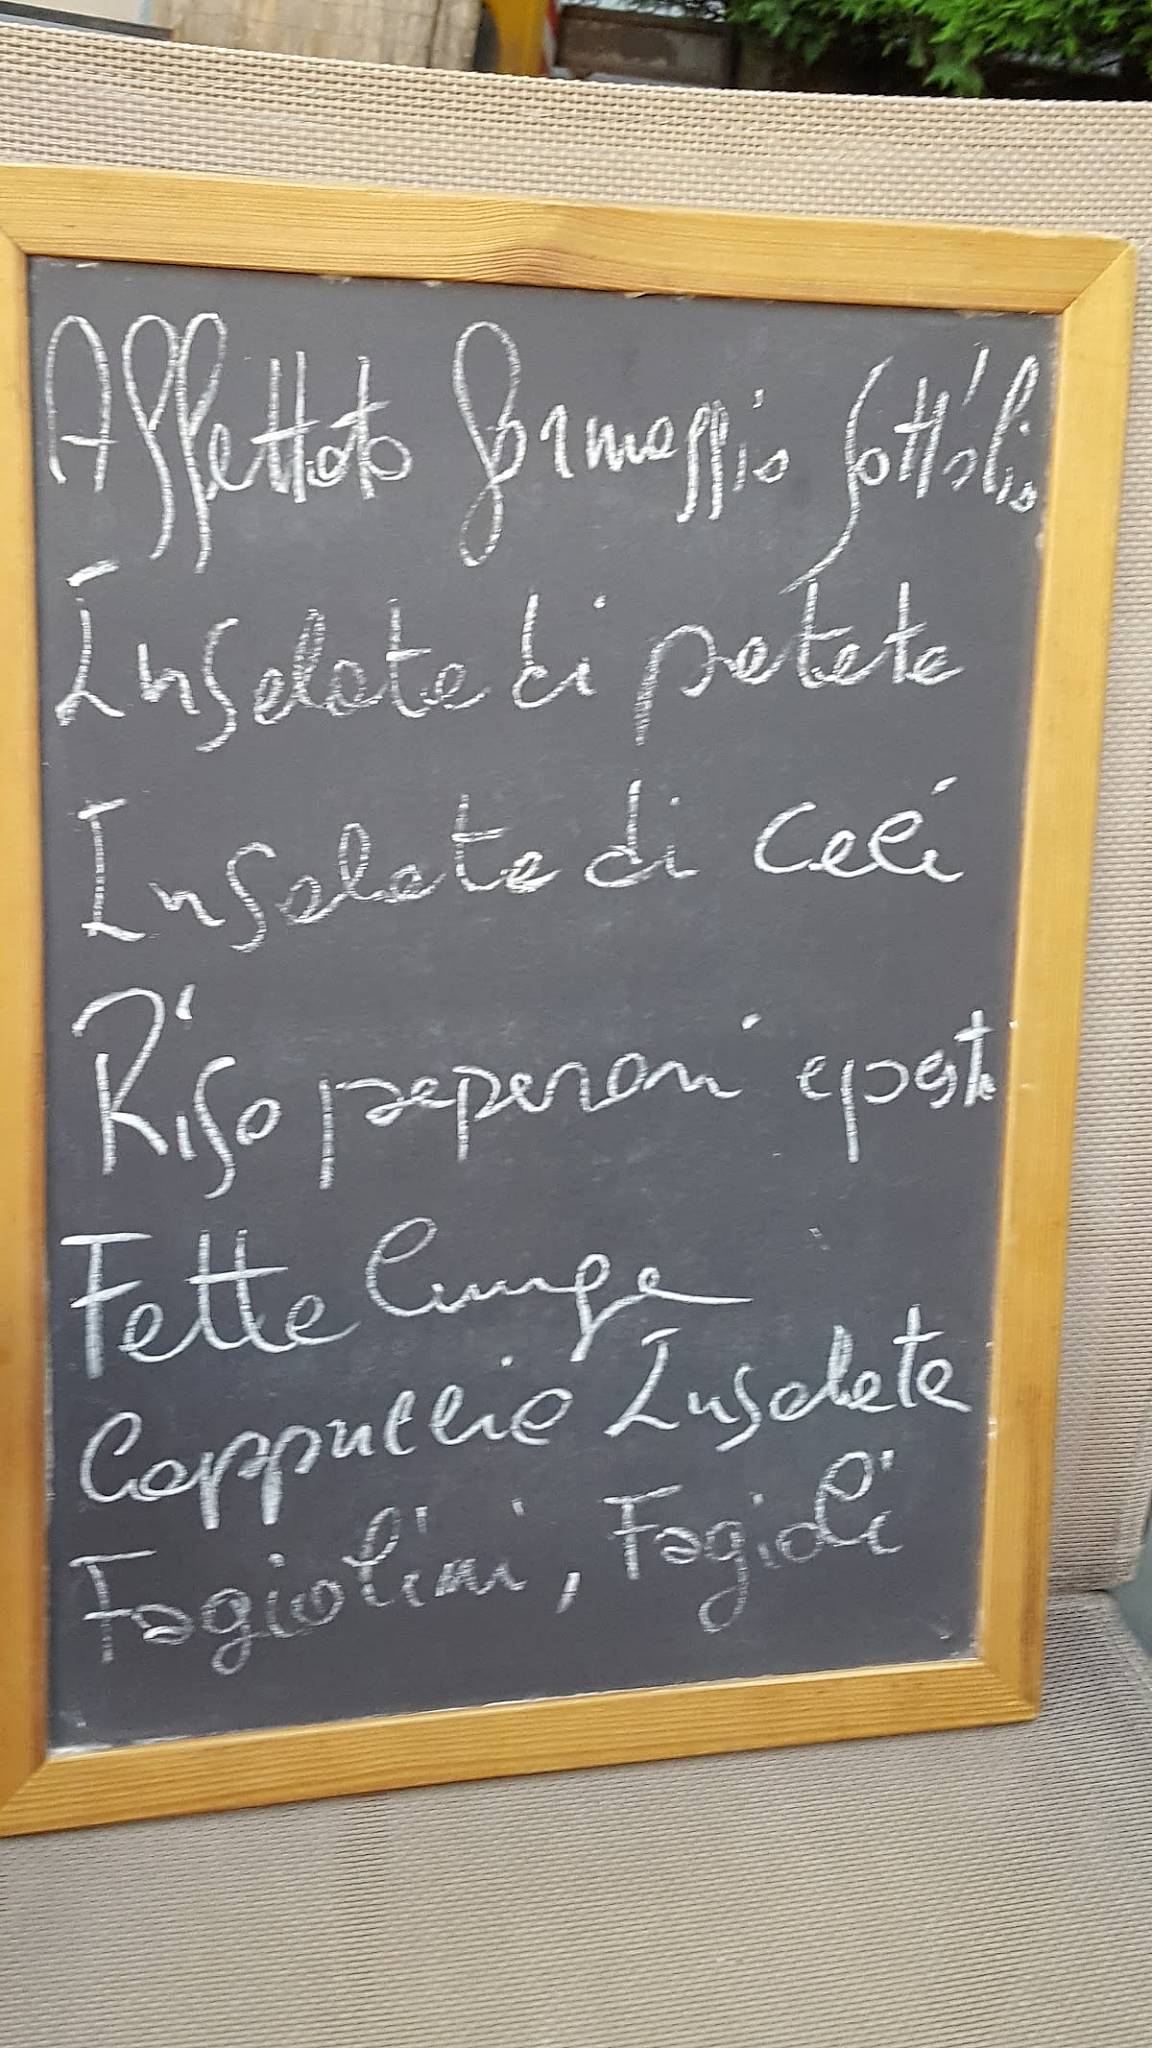 Affettato formaggio sott'olio
Insalata di patate
Insalata di ceci
Riso peperoni e pasta
Fette lunga
Cappuccio Insalata
Fagiolini, Fagioli